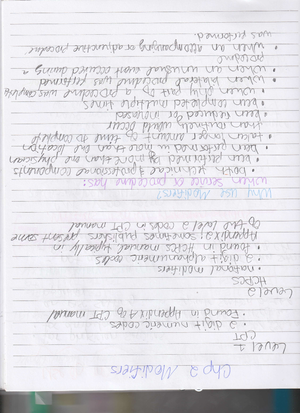 Chp 2 Modifiers
Level 1
CPT
• 2 digit numeric codes
• Found in Appendix A of CPT manual
Level 2
HCPCS
• national modifiers
• 2 digit alphanumeric codes
• found in HCPCS manual, typically in
Appendix 2; sometimes publishers present some
of the level 2 codes in CPT manual
Why use Modifiers?
when service or procedure has:
• both technical & professional components
• been performed by more than one physician
• been performed in more than one location
• taken longer amount of time to complete
than routinely would occur
• been reduced or increased
• been completed multiple times
• when only part of a procedure was completed
• when bilateral procedure was performed
• when an unusual event occured during a
procedure
• when an accompanying or adjunctive procedure
was performed